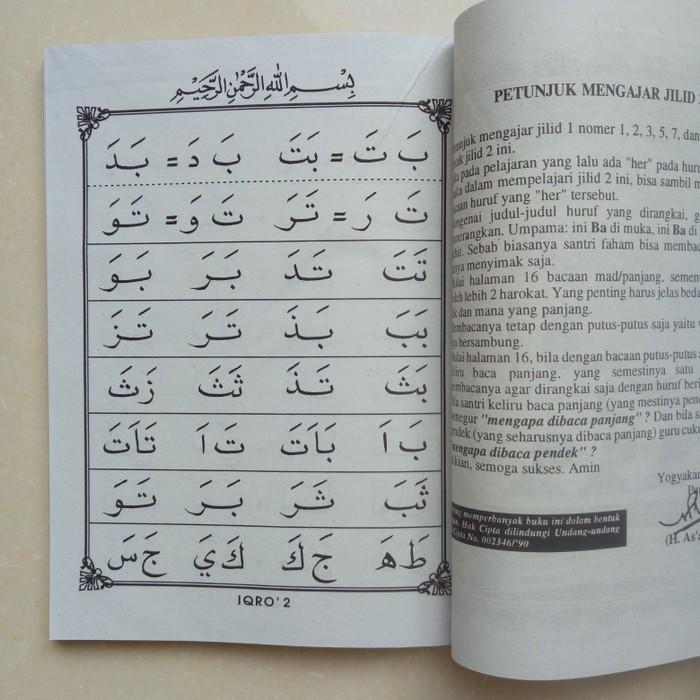 بِسْمِ اللهِ الرَّحْمٰنِ الرَّحِيْمِ
بَ تَ = بَتَ بَ دَ = بَدَ
تَ رَ = تَرَ تَ وَ = تَوَ
تَتَ تَدَ بَرَ بَوَ
بَبَ بَذَ تَرَ تَزَ
بَثَ تَذَ ثَثَ زَثَ
بَ ا بَاتَ تَ ا تَاتَ
ثَبَ ثَرَ بَرَ تَوَ
طَ هَ جَ كَ كَ يَ جَ سَ
IQRO' 2
PETUNJUK MENGAJAR JILID
mengajar jilid 1 nomer 1, 2, 3, 5, 7, dan
jilid 2 ini.
pada pelajaran yang lalu ada "her" pada
dalam mempelajari jilid 2 ini, bisa sambil
huruf yang "her" tersebut.
judul-judul huruf yang dirangkai,
Umpama: ini Ba di muka, ini Ba di
Sebab biasanya santri faham bisa
menyimak saja.
halaman 16 bacaan mad/panjang,
lebih 2 harokat. Yang penting harus jelas
dan mana yang panjang.
tetap dengan putus-putus saja yaitu
bersambung.
halaman 16, bila dengan bacaan putus-putus
baca panjang, yang semestinya satu
agar dirangkai saja dengan huruf
santri keliru baca panjang (yang mestinya
"mengapa dibaca panjang" ? Dan bila
(yang seharusnya dibaca panjang) guru
dibaca pendek" ?
semoga sukses. Amin
memperbanyak buku ini dalam bentuk
Hak Cipta dilindungi Undang-undang
No. 002346/'90